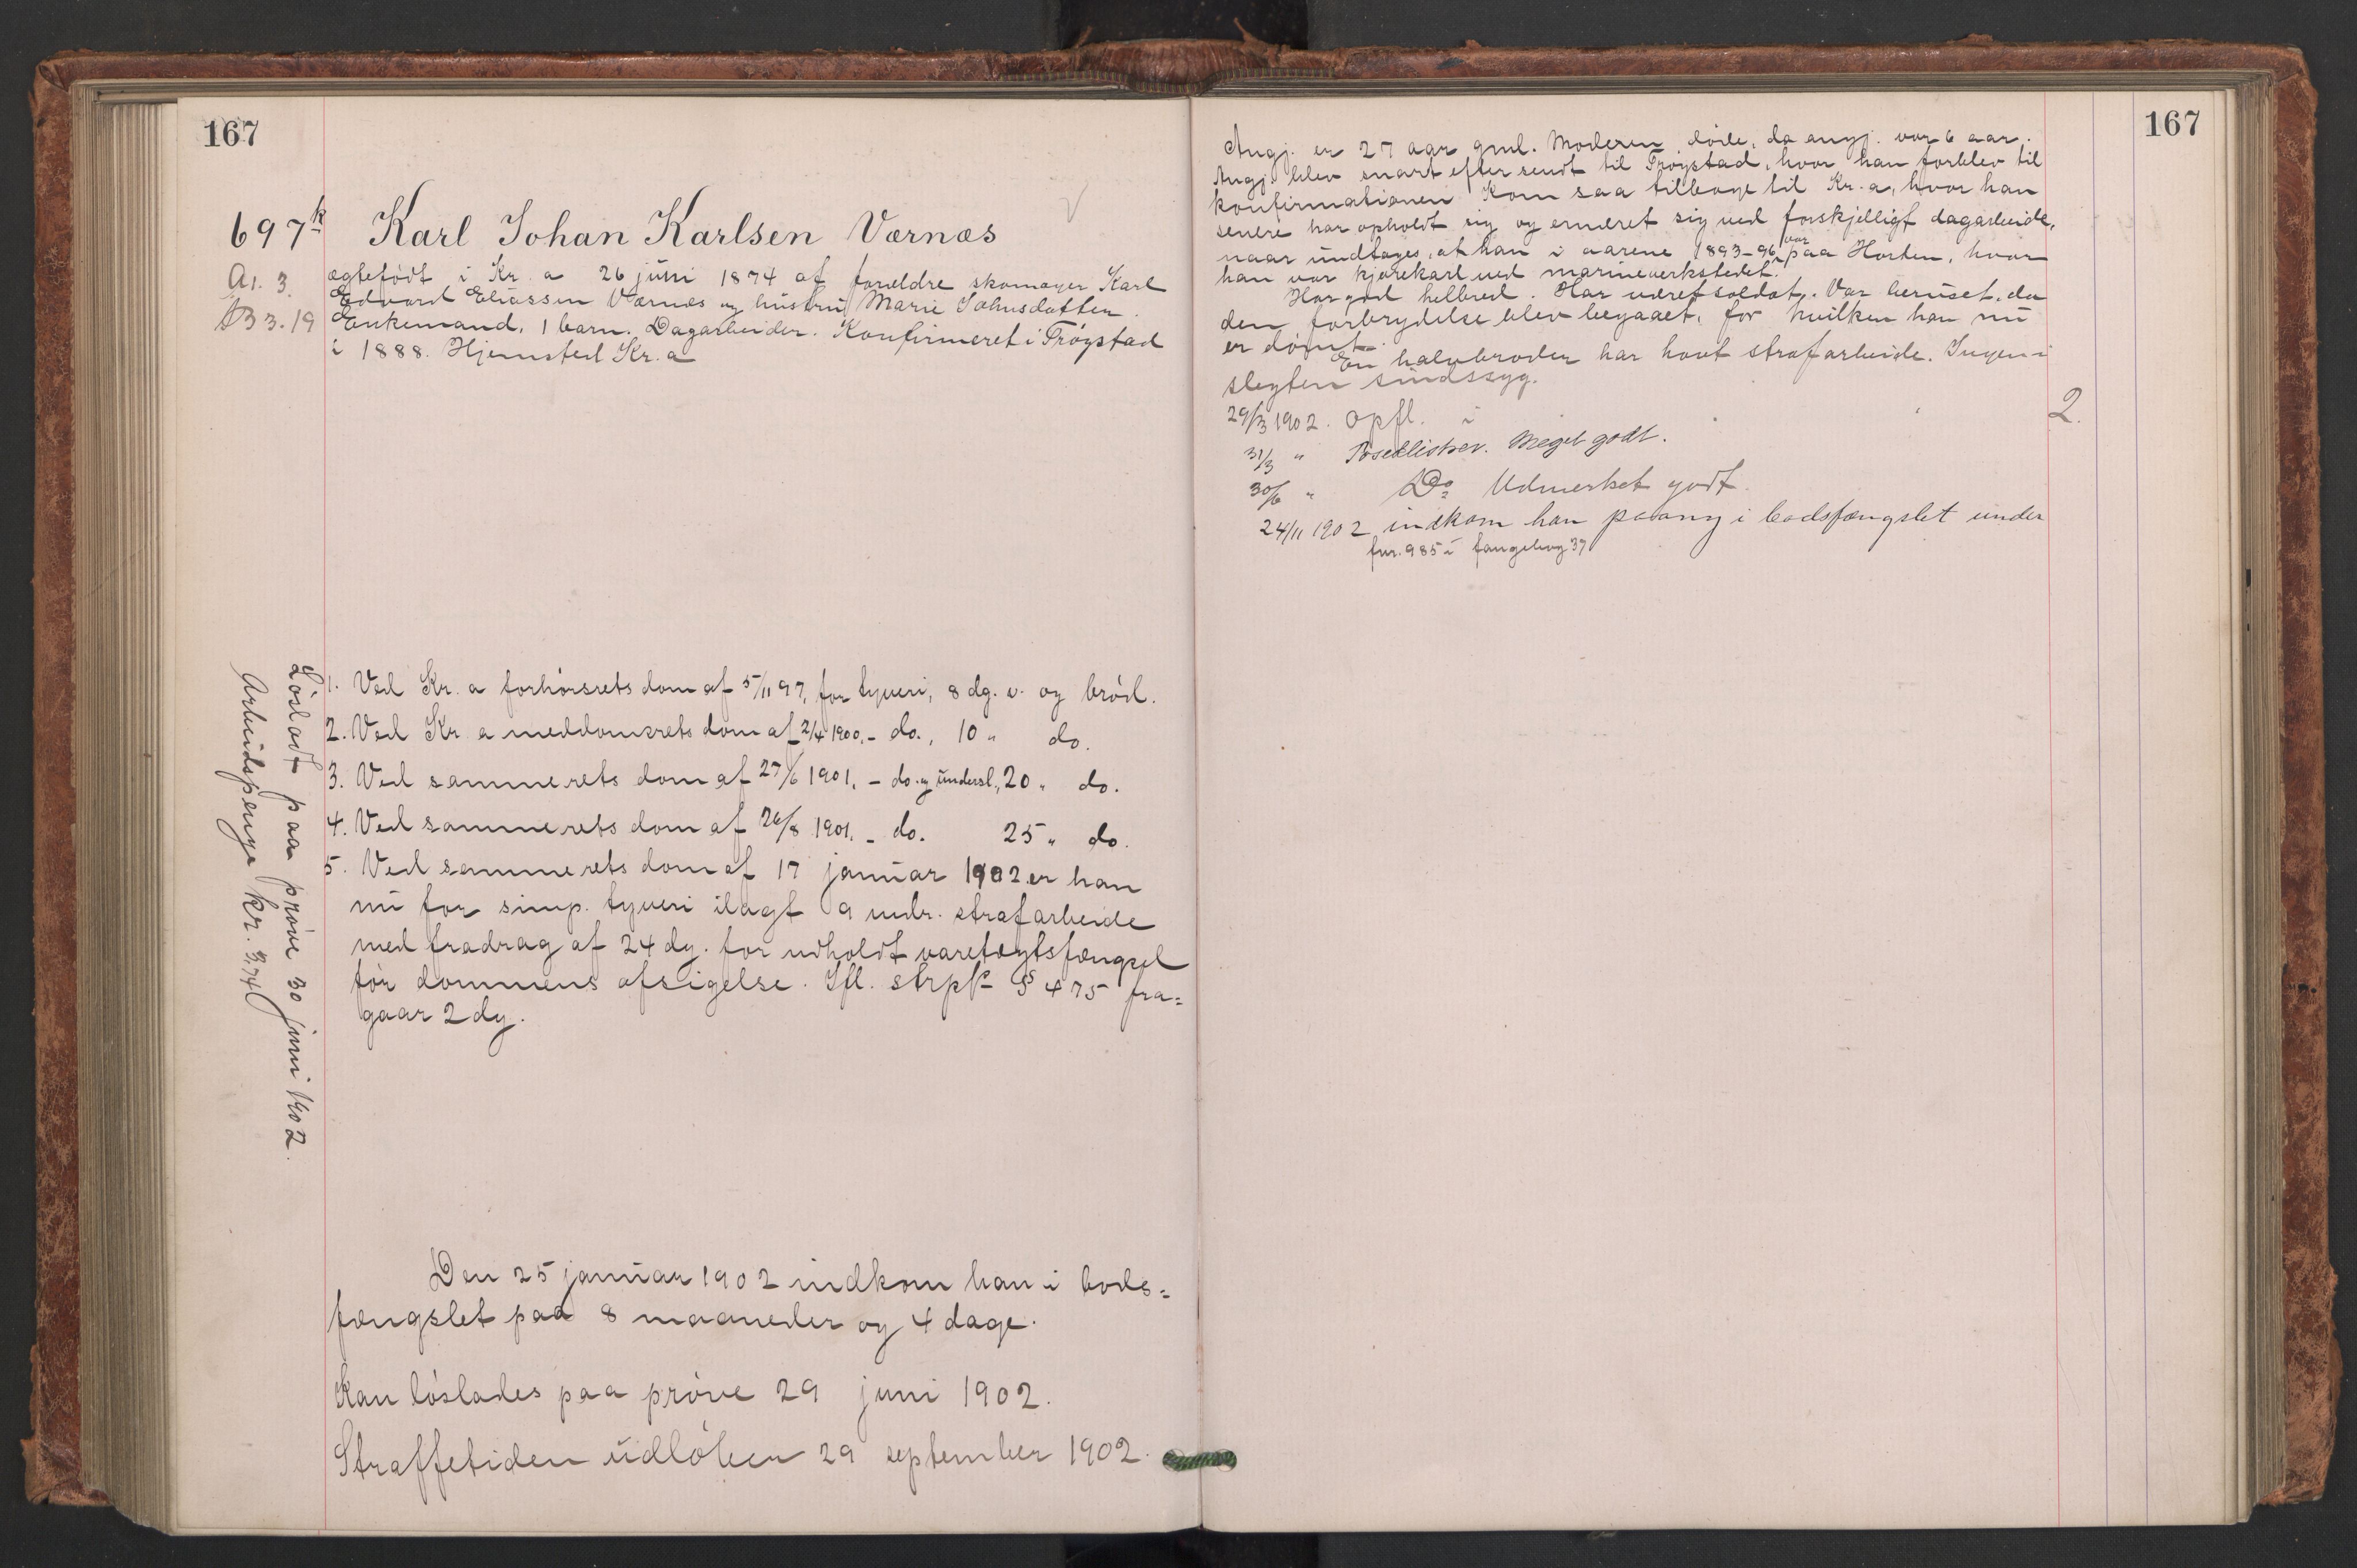 167
697k Karl Johan Karlsen Værnæs
A1. 3. ægtefødt i Kr.a 26 juni 1874 af foreldre skomager Karl
Edvard Eliassen Værnæs og hustru Marie Johnsdatter.
B3. 19 Enkemand, 1 barn. Dagarbeider. Konfirmeret i Trøgstad
i 1888. Hjemsted Kr.a
1. Ved Kr.a forhørsrets dom af 5/11 97, for tyveri, 8 dg. v. og brød.
2. Ved Kr.a meddomsrets dom af 2/4 1900, - do., 10 " do.
3. Ved samme rets dom af 27/6 1901, - do. og undersl., 20 " do.
4. Ved samme rets dom af 26/8 1901, - do. 25 " do.
5. Ved samme rets dom af 17 januar 1902 er han
nu for simp. tyveri ilagt 9 mdr. strafarbeide
med fradrag af 24 dg. for udholdt varetægtsfængsel
før dommens afsigelse. Ifl. strpl § 475 fra=
gaar 2 dg.
Løsladt paa prøve 30 juni 1902.
Arbeidspenge kr. 3,74
Den 25 januar 1902 indkom han i bods=
fængslet paa 8 maaneder og 4 dage.
Kan løslades paa prøve 29 juni 1902.
Straffetiden udløber 29 september 1902.
167
Angj. er 27 aar gml. Moderen døde, da angj. var 6 aar.
Angj. blev snart efter sendt til Trøgstad, hvor han forblev til
konfirmationen. Kom saa tilbage til Kr.a, hvor han
senere har opholdt sig og ernæret sig ved forskjelligt dagarbeide,
naar undtages, at han i aarene 1893-96 var paa Horten, hvor
han var kjørekarl ved marineverkstedet.
Har god helbred. Har været soldat. Var beruset, da
den forbrydelse blev begaaet, for hvilken han nu
er dømt.
En halvbroder har havt strafarbeide. Ingen i
slegten sindssyg.
29/3 1902. Opfl. i 2.
31/3 " Meget godt.
30/6 " Do Udmerket godt.
24/11 1902 indkom han paany i bodsfængslet under
fnr. 985 i fangebog 37